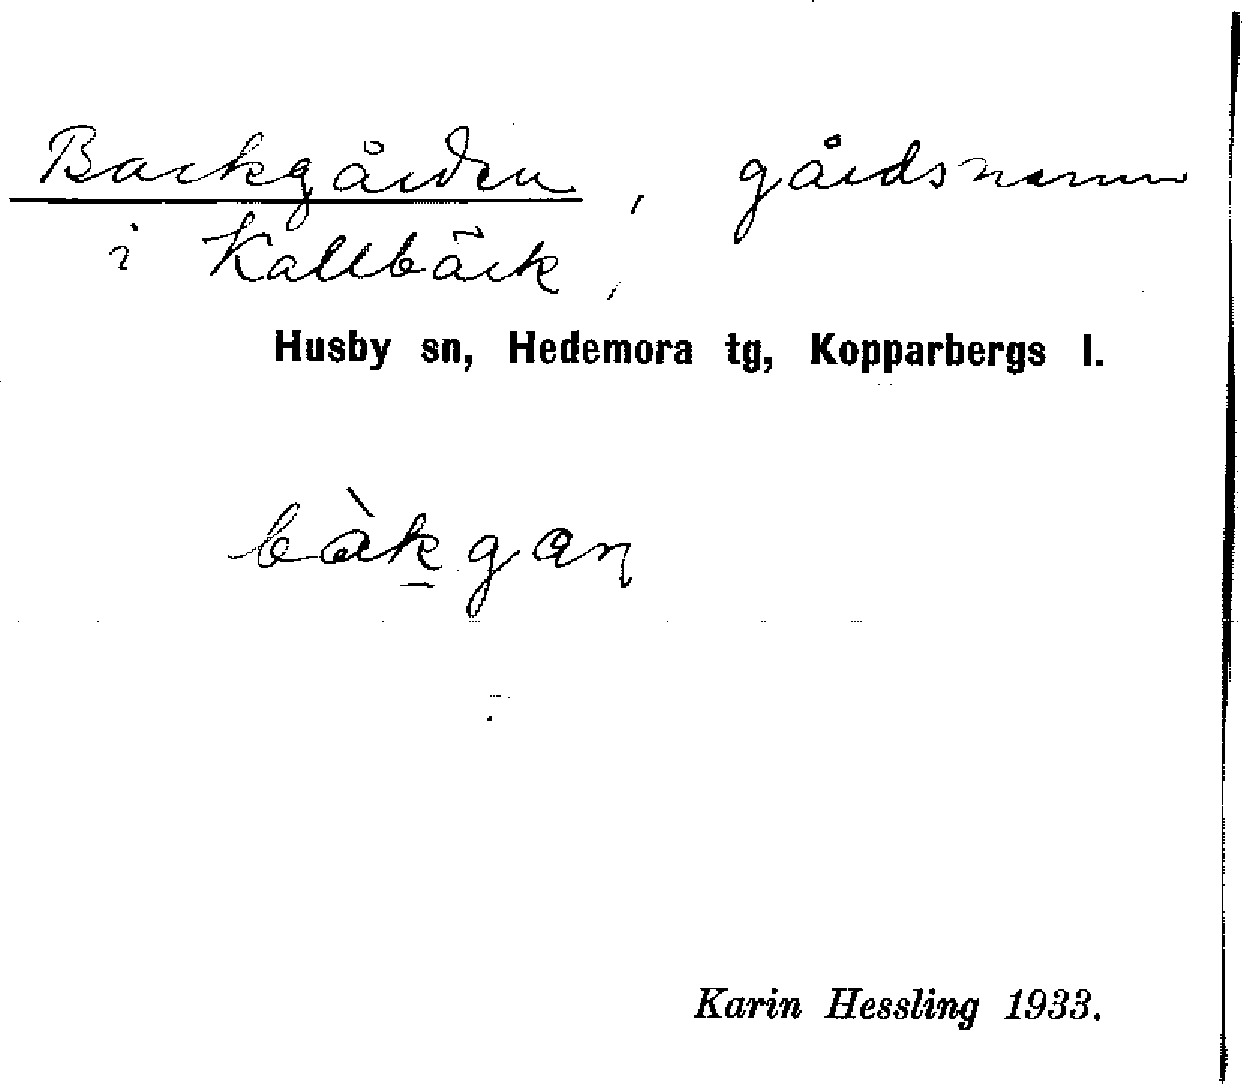 Backgården, gårdsnamn
i Kallbäck,
Husby sn, Hedemora tg, Kopparbergs l.
bàk̲gaɳ
Karin Hessling 1933.